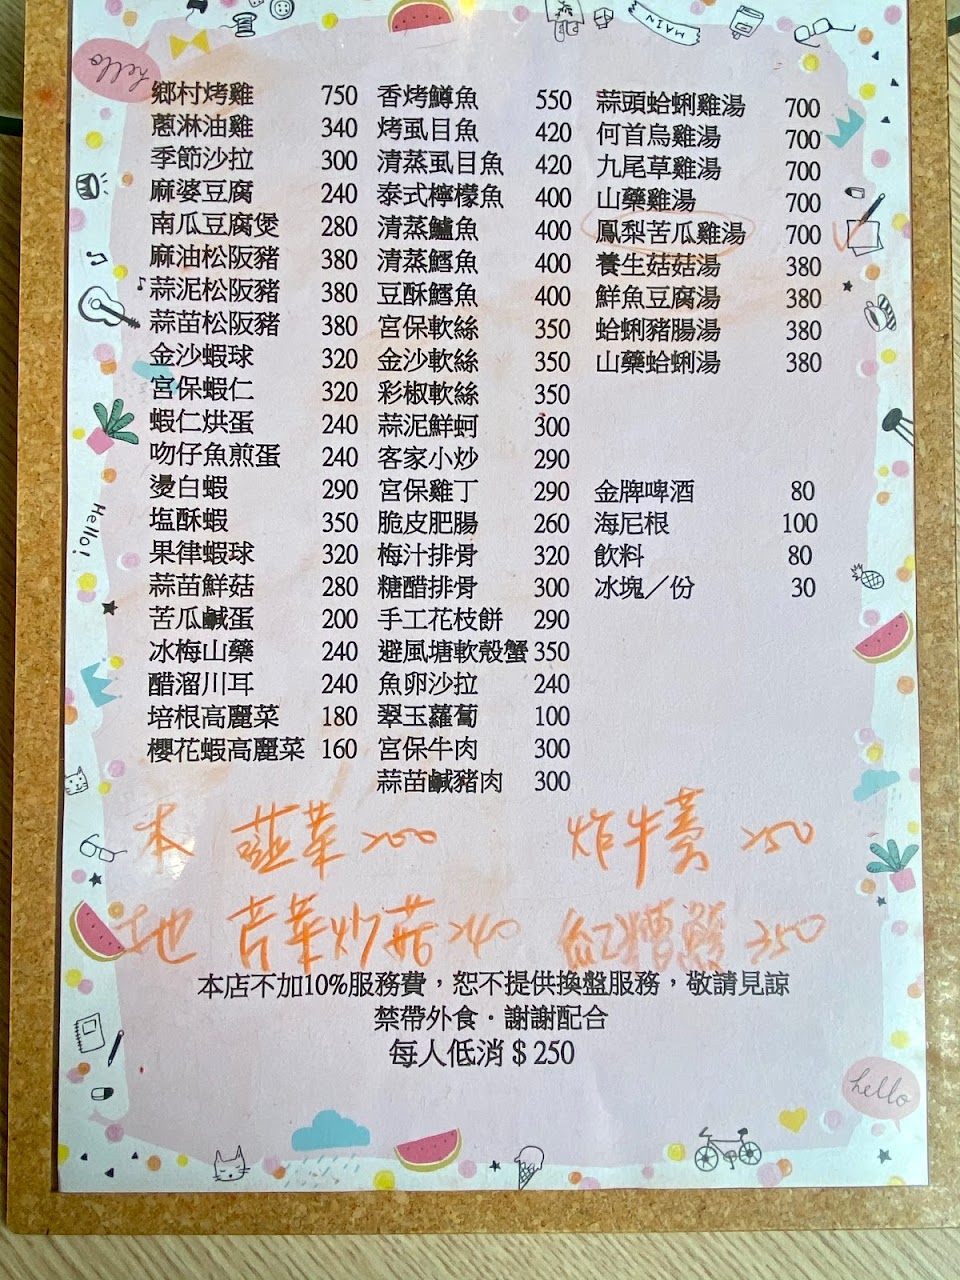 MAIN
hello
鄉村烤雞 750
蔥淋油雞 340
季節沙拉 300
麻婆豆腐 240
南瓜豆腐煲 280
麻油松阪豬 380
蒜泥松阪豬 380
蒜苗松阪豬 380
金沙蝦球 320
宮保蝦仁 320
蝦仁烘蛋 240
吻仔魚煎蛋 240
燙白蝦 290
塩酥蝦 350
果律蝦球 320
蒜苗鮮菇 280
苦瓜鹹蛋 200
冰梅山藥 240
醋溜川耳 240
培根高麗菜 180
櫻花蝦高麗菜 160
香烤鱒魚 550
烤虱目魚 420
清蒸虱目魚 420
泰式檸檬魚 400
清蒸鱸魚 400
清蒸鱈魚 400
豆酥鱈魚 400
宮保軟絲 350
金沙軟絲 350
彩椒軟絲 350
蒜泥鮮蚵 300
客家小炒 290
宮保雞丁 290
脆皮肥腸 260
梅汁排骨 320
糖醋排骨 300
手工花枝餅 290
避風塘軟殼蟹 350
魚卵沙拉 240
翠玉蘿蔔 100
宮保牛肉 300
蒜苗鹹豬肉 300
蒜頭蛤蜊雞湯 700
何首烏雞湯 700
九尾草雞湯 700
山藥雞湯 700
鳳梨苦瓜雞湯 700
養生菇菇湯 380
鮮魚豆腐湯 380
蛤蜊豬腸湯 380
山藥蛤蜊湯 380
金牌啤酒 80
海尼根 100
飲料 80
冰塊／份 30
Hello!
本 韮菜 200
炸牛蒡 250
地 菜炒菇 240
紅糟鰻 350
本店不加10%服務費，恕不提供換盤服務，敬請見諒
禁帶外食．謝謝配合
每人低消＄250
hello